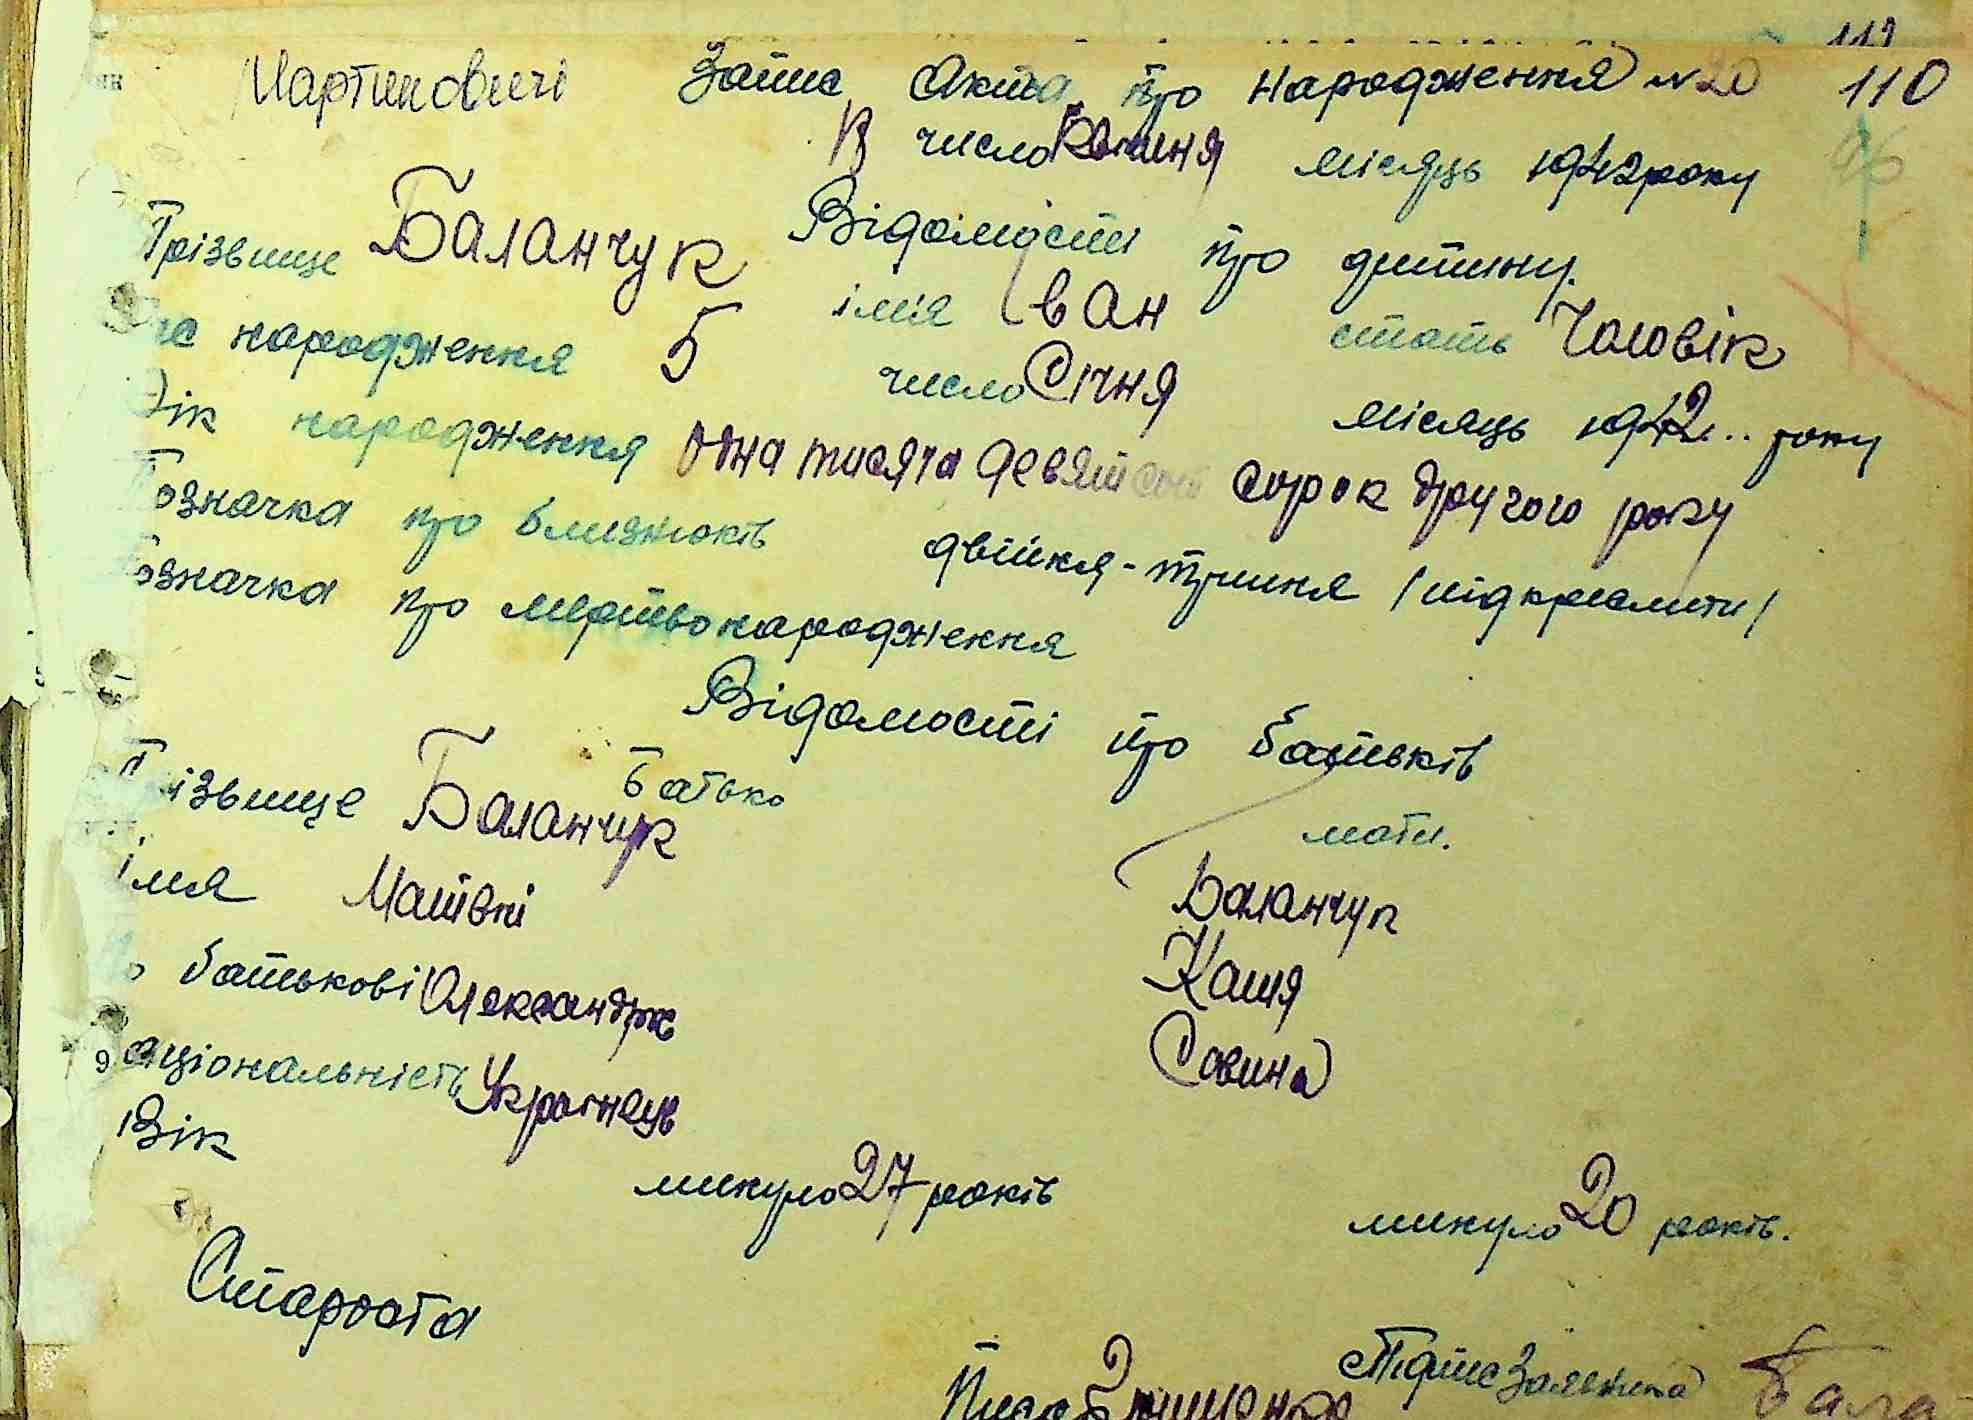 Мартиновичі Запис Акта про народження №20 110
13 число Квітня місяць 1942 року
Відомості про дитину.
Прізвище Баланчук імія Іван стать Чоловік
народження 5 число Січня місяць 1942.. року
Рік народження одна тисяча девятсот сорок другого року
Позначка про близнюків двійня-трійня /підкреслити/
Позначка про мертвонародження
Відомості про батьків
Батько мати.
Прізвище Баланчук Баланчук
імя Матвій Катя
По батькові Олександр Совина
Національність Українець
Вік минуло 27 років минуло 20 років.
Староста
Підпис Заявника Бала